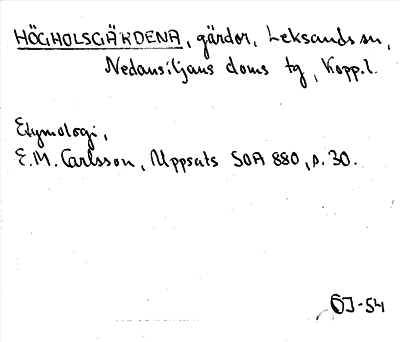 HÖGHOLSGÄRDENA, gårdar, Leksands sn,
Nedansiljans doms tg, Kopp.l.
Etymologi,
E.M. Carlsson, Uppsats SOA 880, s. 30.
ÖJ-54